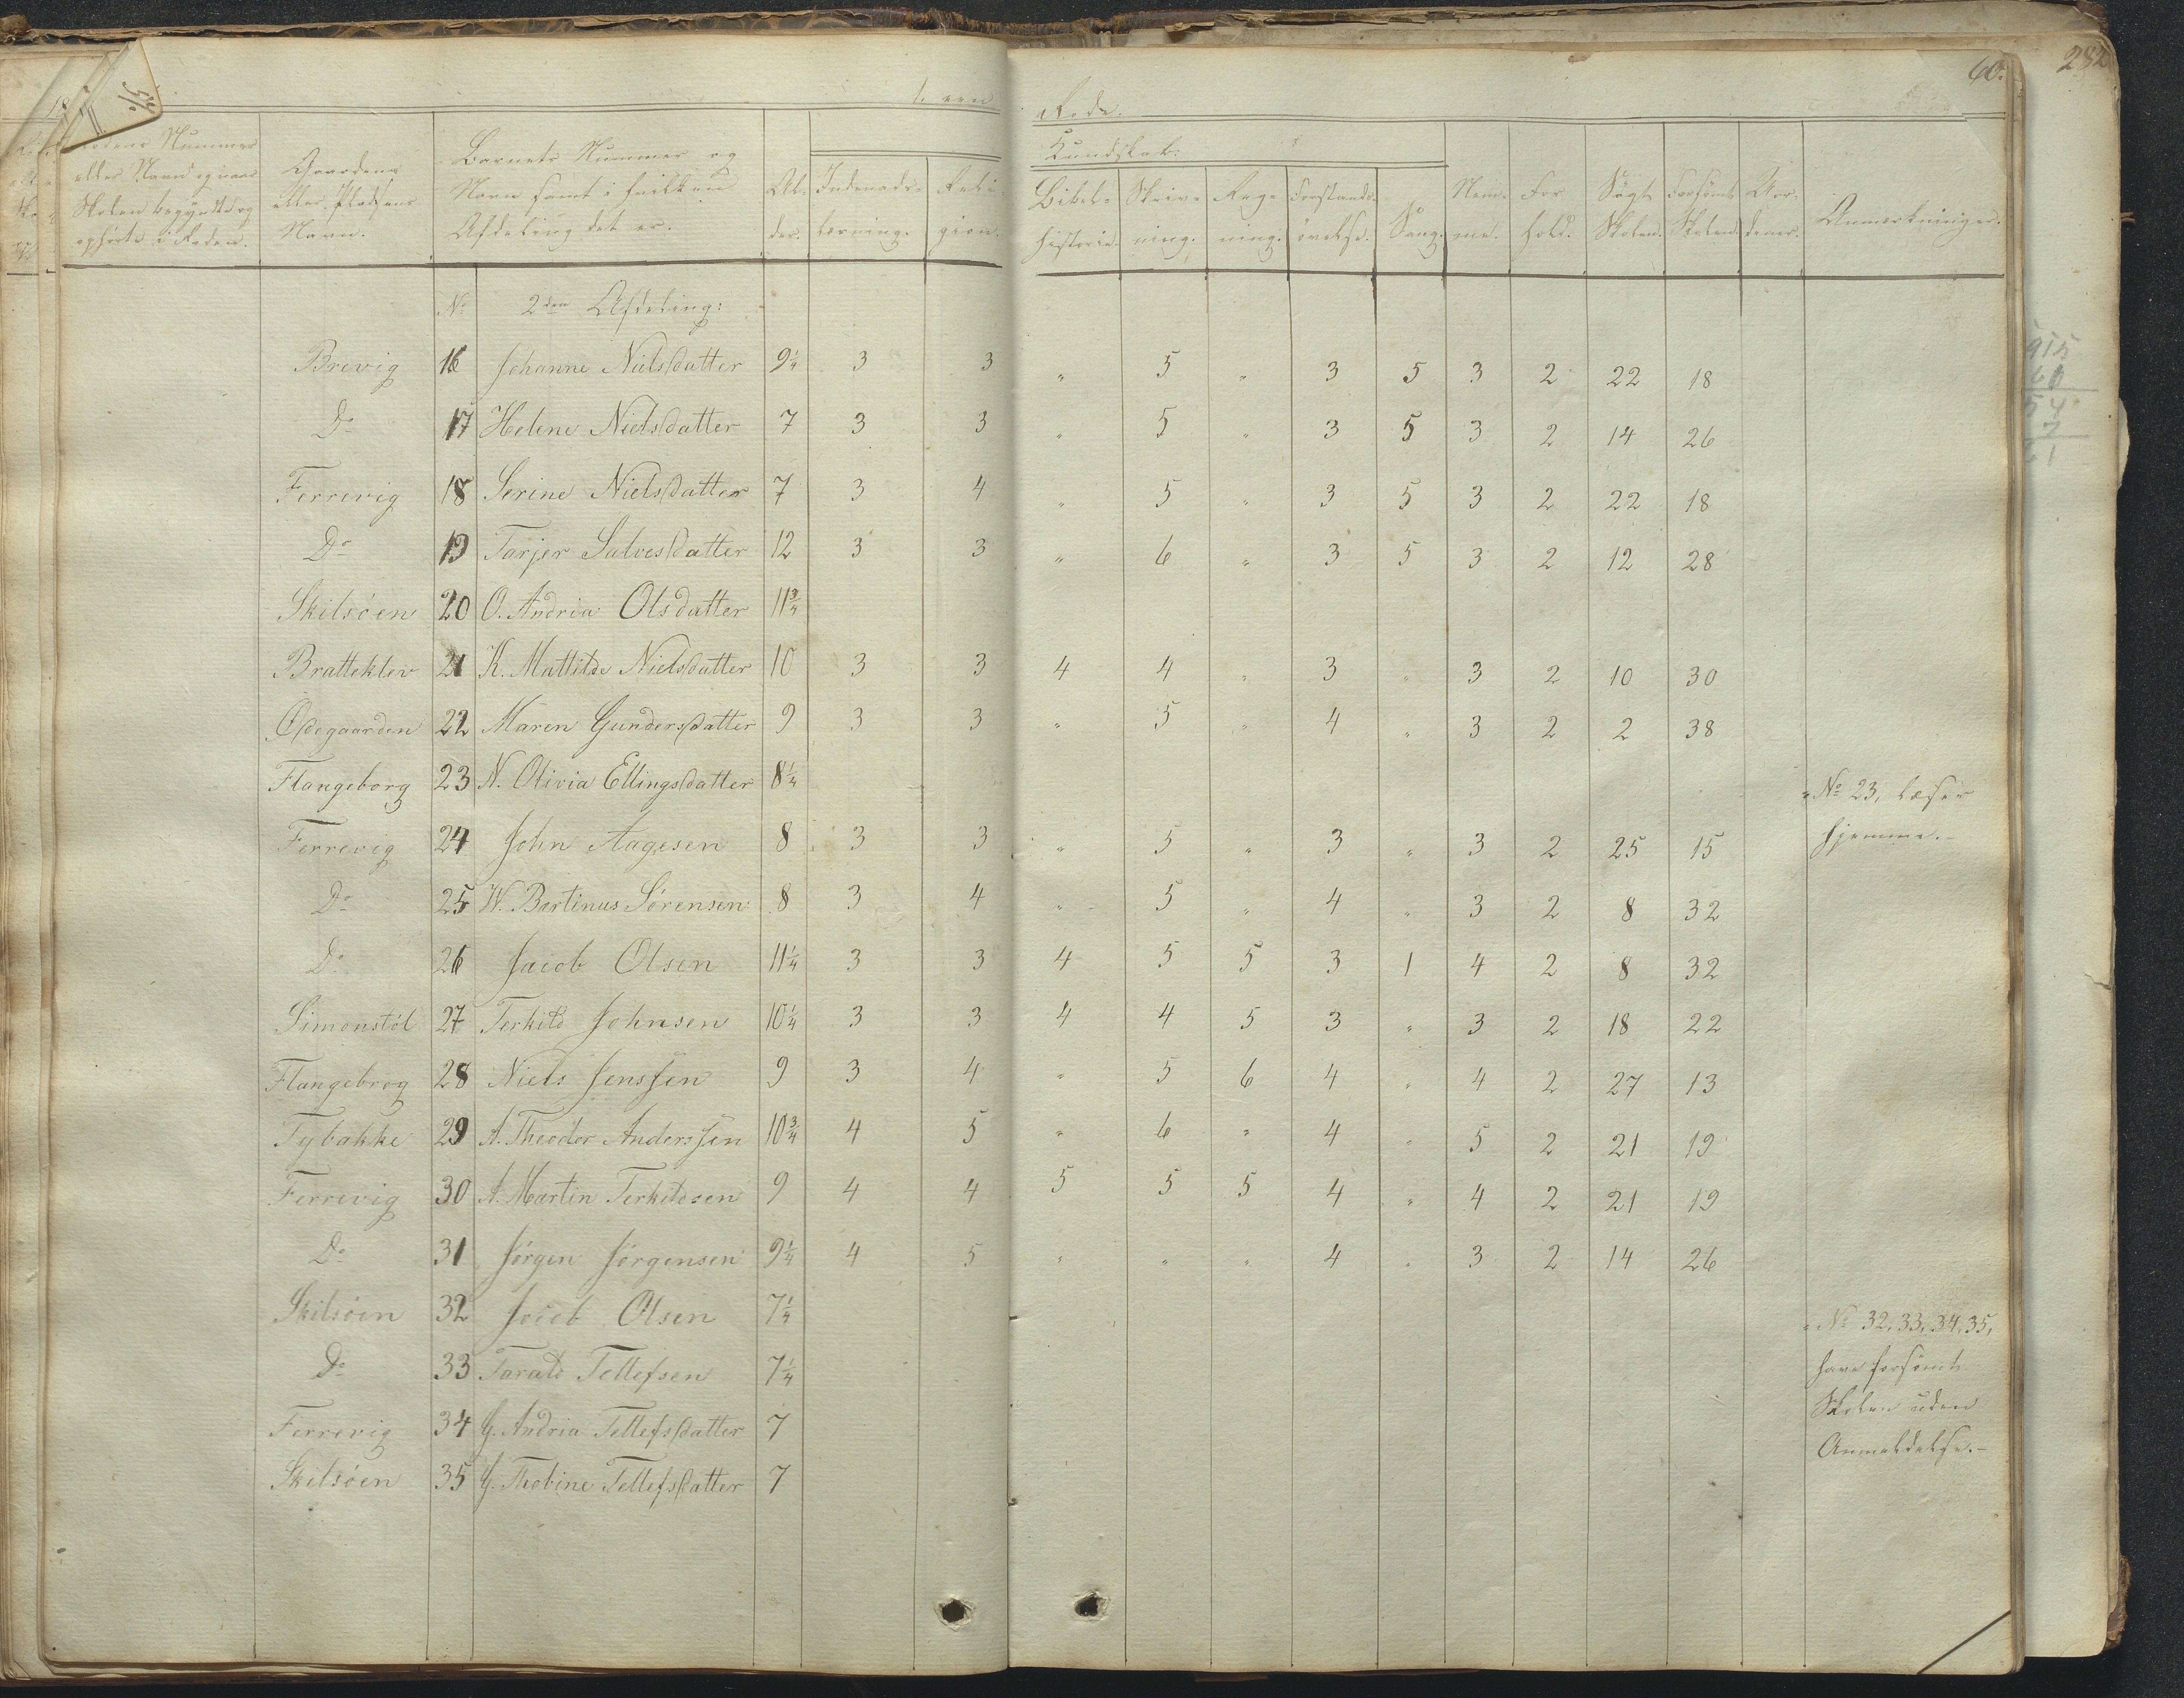 282
60.
Rode.
Rodens Nummer eller Navn og naar Skolen begyndte og ophørte i Roden. Gaardens eller Pladsens Navn. Barnets Nummer og Navn samt i hvilken Afdeling det er. Al- der. Indenads- læsning. Reli- gion. Kundskab. Bibel- historie. Skriv- ning. Reg- ning. Forstands- øvelse. Sang. Nem- me. For hold. Søgt Skolen. Forsømt Skolen. Anmærkninger.
No 2den Afdeling:
Brevig 16 Johanne Nielsdatter 9¼ 3 3 " 5 " 3 5 3 2 22 18
Do 17 Helene Nielsdatter 7 3 3 " 5 " 3 5 3 2 14 26
Ferrevig 18 Serine Nielsdatter 7 3 4 " 5 " 3 5 3 2 22 18
Do 19 Tarjer Salvesdatter 12 3 3 " 6 " 3 5 3 2 12 28
Skilsöen 20 O. Andria Olsdatter 11¾
Bratteklev 21 K. Mattilde Nielsdatter 10 3 3 4 4 " 3 " 3 2 10 30
Ödegaarden 22 Maren Gundersdatter 9 3 3 " 5 " 4 " 3 2 2 38
Flangeborg 23 N. Olivia Ellingsdatter 8¼ " No 23, læser
Ferrevig 24 John Aagesen 8 3 3 " 5 " 3 " 3 2 25 15 hjemme.-
Do 25 W. Bertinus Sörensen 8 3 4 " 5 " 4 " 3 2 8 32
Do 26 Jacob Olsen 11¼ 3 3 4 5 5 3 1 4 2 8 32
Simonstöl 27 Terkild Johnsen 10¼ 3 3 4 4 5 3 " 3 2 18 22
Flangebrog 28 Niels Jenssen 9 3 4 " 5 6 4 " 4 2 27 13
Tybakke 29 A. Theodor Anderssen 10¾ 4 5 " 6 " 4 " 5 2 21 19
Ferrevig 30 A. Martin Terkildsen 9 4 4 5 5 5 4 " 4 2 21 19
Do 31 Jörgen Jörgensen 9¼ 4 5 " " " 4 " 3 2 14 26
Skilsöen 32 Jacob Olsen 7¼ " No 32, 33, 34, 35,
Do 33 Tarald Tellefsen 7¼ have forsömt
Skolen uden
Ferrevig 34 G. Andria Tellefsdatter 7
Anmeldelse.-
Skilsöen 35 G. Thobine Tellefsdatter 7